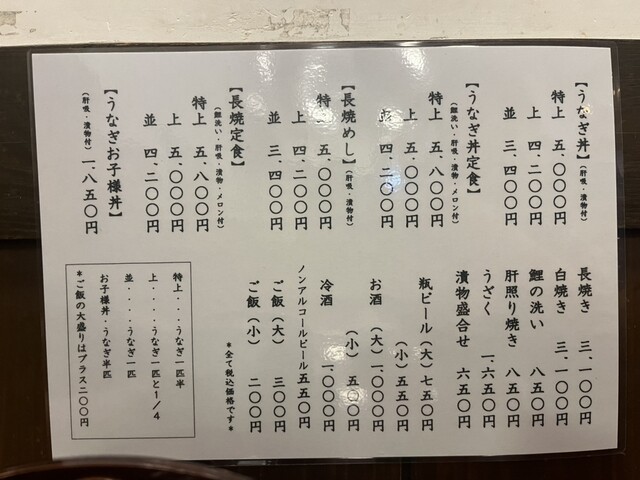 【うなぎ丼】（肝吸・漬物付）
特上 五、〇〇〇円
上 四、二〇〇円
並 三、四〇〇円
【うなぎ丼定食】
（鯉洗い・肝吸・漬物・メロン付）
特上 五、八〇〇円
上 五、〇〇〇円
並 四、二〇〇円
【長焼めし】（肝吸・漬物付）
特上 五、〇〇〇円
上 四、二〇〇円
並 三、四〇〇円
【長焼定食】
（鯉洗い・肝吸・漬物・メロン付）
特上 五、八〇〇円
上 五、〇〇〇円
並 四、二〇〇円
【うなぎお子様丼】
（肝吸・漬物付）一、八五〇円
長焼き 三、一〇〇円
白焼き 三、一〇〇円
鯉の洗い 八五〇円
肝照り焼き 八五〇円
うざく 一、六五〇円
漬物盛合せ 六五〇円
瓶ビール（大）七五〇円
（小）五五〇円
お酒（大）一、〇〇〇円
（小）五〇〇円
冷酒 一、〇〇〇円
ノンアルコールビール 五五〇円
ご飯（大）三〇〇円
ご飯（小）二〇〇円
＊全て税込価格です＊
特上・・・うなぎ一匹半
上・・・・うなぎ一匹と１／４
並・・・・うなぎ一匹
お子様丼・うなぎ半匹
＊ご飯の大盛りはプラス二〇〇円